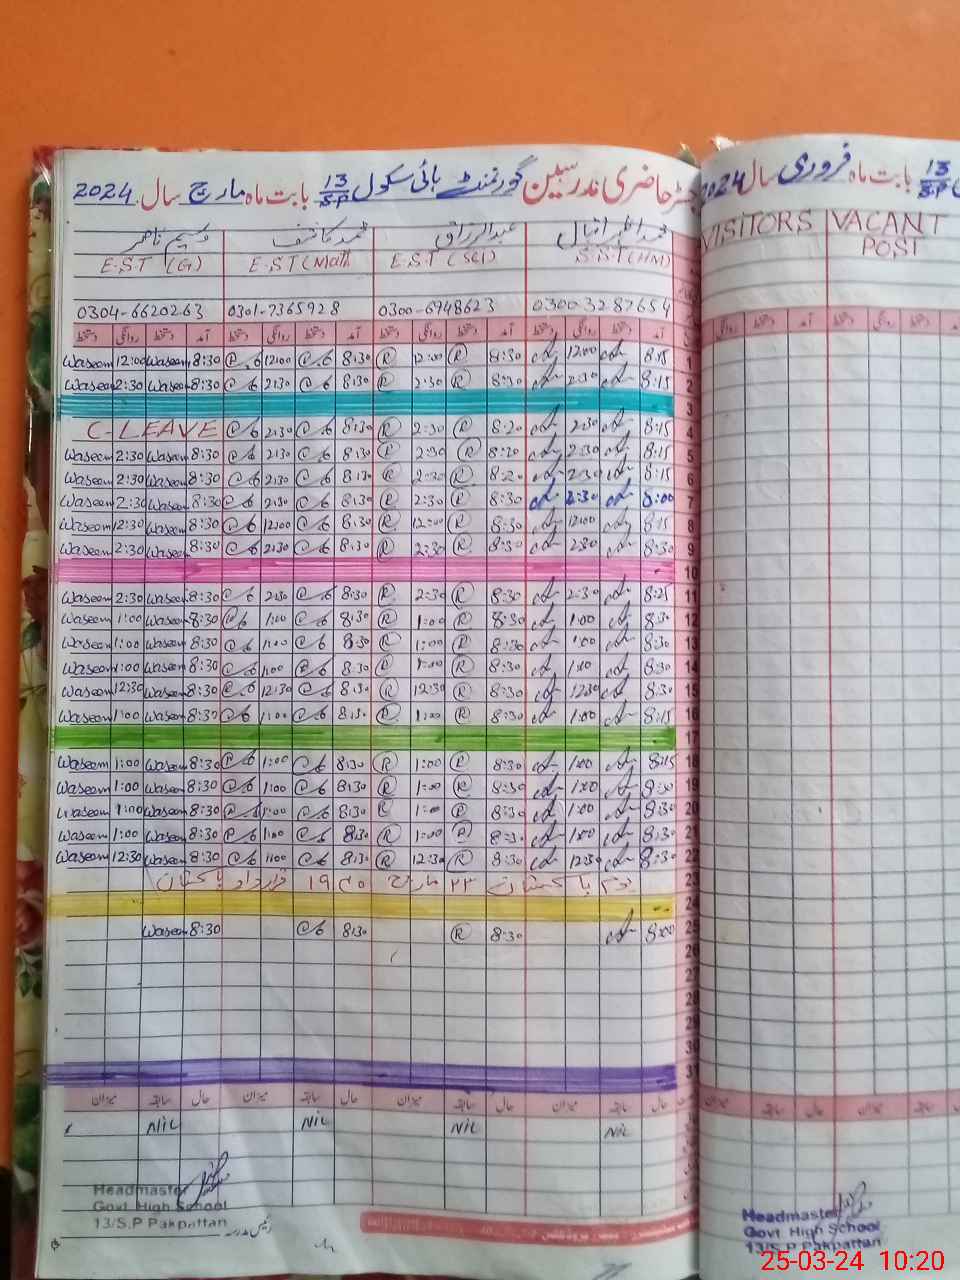 رجسٹر حاضری مدرسین گورنمنٹ ہائی سکول 13/S.P بابت ماہ مارچ سال 2024
13/S.P بابت ماہ فروری سال 2024
محمد اظہر اقبال عبدالرزاق محمد کاشف وسیم ناصر
S.S.T (HM) E.S.T (SCI) E.S.T (Math) E.S.T (G)
VISITORS VACANT POST
0304-6620263 0301-7365928 0300-6948623 0300 3287654
آمد دستخط روانگی دستخط آمد دستخط روانگی دستخط آمد دستخط روانگی دستخط آمد دستخط روانگی دستخط
Waseem 12:00 Waseem 8:30 12:00 8:30 R 12:00 R 8:30 12:00 8:15 1
Waseem 2:30 Waseem 8:30 2:30 8:30 R 2:30 R 8:30 2:30 8:15 2
3
C-LEAVE 2:30 8:30 R 2:30 R 8:20 2:30 8:15 4
Waseem 2:30 Waseem 8:30 2:30 8:30 R 2:30 R 8:20 2:30 8:15 5
Waseem 2:30 Waseem 8:30 2:30 8:30 R 2:30 R 8:20 2:30 8:15 6
Waseem 2:30 Waseem 8:30 2:30 8:30 R 2:30 R 8:30 2:30 8:00 7
Waseem 12:30 Waseem 8:30 12:00 8:30 R 12:00 R 8:30 12:00 8:15 8
Waseem 2:30 Waseem 8:30 2:30 8:30 R 2:30 R 8:30 2:30 8:30 9
10
Waseem 2:30 Waseem 8:30 2:30 8:30 R 2:30 R 8:30 2:30 8:25 11
Waseem 1:00 Waseem 8:30 1:00 8:30 R 1:00 R 8:30 1:00 8:30 12
Waseem 1:00 Waseem 8:30 1:00 8:30 R 1:00 R 8:30 1:00 8:30 13
Waseem 1:00 Waseem 8:30 1:00 8:30 R 1:00 R 8:30 1:00 8:30 14
Waseem 12:30 Waseem 8:30 12:30 8:30 R 12:30 R 8:30 12:30 8:30 15
Waseem 1:00 Waseem 8:30 1:00 8:30 R 1:00 R 8:30 1:00 8:15 16
17
Waseem 1:00 Waseem 8:30 1:00 8:30 R 1:00 R 8:30 1:00 8:15 18
Waseem 1:00 Waseem 8:30 1:00 8:30 R 1:00 R 8:30 1:00 8:30 19
Waseem 1:00 Waseem 8:30 1:00 8:30 R 1:00 R 8:30 1:00 8:30 20
Waseem 1:00 Waseem 8:30 1:00 8:30 R 1:00 R 8:30 1:00 8:30 21
Waseem 12:30 Waseem 8:30 1:00 8:30 R 12:30 R 8:30 12:30 8:30 22
یوم پاکستان ۲۳ مارچ ۱۹۴۰ قرارداد پاکستان 23
24
Waseem 8:30 8:30 R 8:30 8:00 25
26
27
28
29
30
31
حال سابقہ میزان حال سابقہ میزان حال سابقہ میزان حال سابقہ میزان
Nil Nil Nil Nil
Headmaster
Govt High School
13/S.P Pakpattan
رئیس مدرسہ
Headmaster
Govt High School
13/S.P Pakpattan
25-03-24 10:20